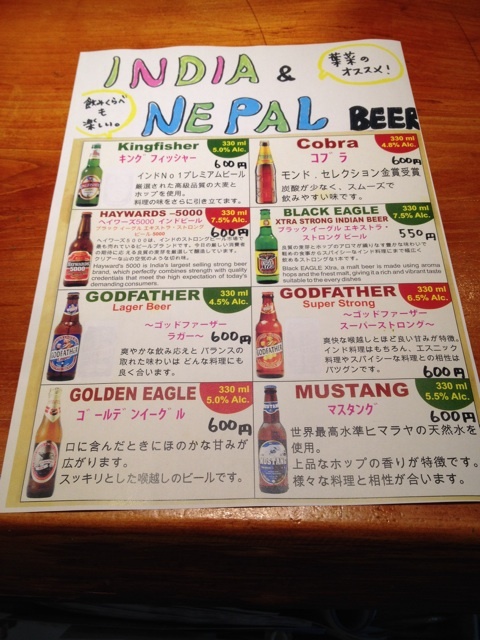 INDIA &
NEPAL BEER
葉菜の
オススメ!
飲みくらべ
も
楽しい。
Kingfisher
330 ml
5.0% Alc.
キングフィッシャー
600円
インドNo1プレミアムビール
厳選された高級品質の大麦と
ホップを使用。
料理の味をさらに引き立てます。
Cobra
330 ml
4.8% Alc.
コブラ
600円
モンド.セレクション金賞受賞
炭酸が少なく、スムーズで
飲みやすい味です。
HAYWARDS -5000
330 ml
7.5% Alc.
ヘイワーズ5000 インドビール
ブラック イーグル エキストラ・ストロング
ビール 5000
600円
Hayward's 5000 is India's largest selling strong beer
brand, which perfectly combines strength with quality
credentials that meet the high expectation of today's
demanding consumers.
BLACK EAGLE
330 ml
7.5% Alc.
XTRA STRONG INDIAN BEER
ブラック イーグル エキストラ・
ストロング ビール
550円
Black EAGLE Xtra, a malt beer is made using aroma
hops and the finest malt, giving it a rich and vibrant taste
suitable to the every dishes
GODFATHER
330 ml
4.5% Alc.
Lager Beer
～ゴッドファーザー
ラガー～
600円
爽やかな飲み応えと バランスの
取れた味わいは どんな料理にも
良く合います。
GODFATHER
330 ml
6.5% Alc.
Super Strong
～ゴッドファーザー
スーパーストロング～
爽快な喉越しとほど良い甘みが特徴。
インド料理はもちろん、エスニック
料理やスパイシーな料理との相性は
バツグンです。
600円
GOLDEN EAGLE
330 ml
5.0% Alc.
ゴールデンイーグル
600円
口に含んだときにほのかな甘みが
広がります。
スッキリとした喉越しのビールです。
MUSTANG
330 ml
5.5% Alc.
マスタング
600円
世界最高水準ヒマラヤの天然水を
使用。
上品なホップの香りが特徴です。
様々な料理と相性が合います。
GODFATHER
GODFATHER
MUSTANG